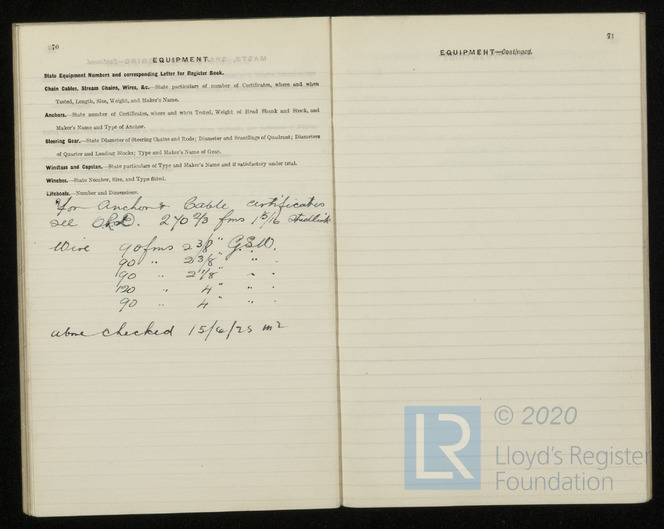 70
EQUIPMENT.
State Equipment Numbers and corresponding Letter for Register Book.
Chain Cables, Stream Chains, Wires, &c.—State particulars of number of Certificates, where and when
Tested, Length, Size, Weight, and Maker's Name.
Anchors.—State number of Certificates, where and when Tested, Weight of Head Shank and Stock, and
Maker's Name and Type of Anchor.
Steering Gear.—State Diameter of Steering Chains and Rods; Diameter and Scantlings of Quadrant; Diameters
of Quarter and Leading Blocks; Type and Maker's Name of Gear.
Windlass and Capstan.—State particulars of Type and Maker's Name and if satisfactory under trial.
Winches.—State Number, Size, and Type fitted.
Lifeboats.—Number and Dimensions.
For Anchor & Cable certificates
see 270 2/3 fms 1 15/16 studlink
Wire 90 fms 2 3/8" G.S.W.
90 " " "
90 " " "
120 " 4" " "
90 " 4" " "
above checked 15/6/25
71
EQUIPMENT—Continued.
© 2020
LR
Lloyd's Register
Foundation